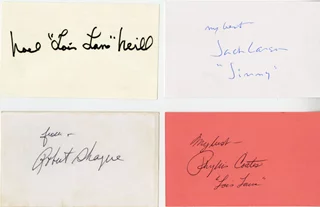 Noel "Lois Lane" Neill
my best
Jack Larson
"Jimmy"
from -
Robert Shayne
My best -
Phyllis Coates
"Lois Lane"